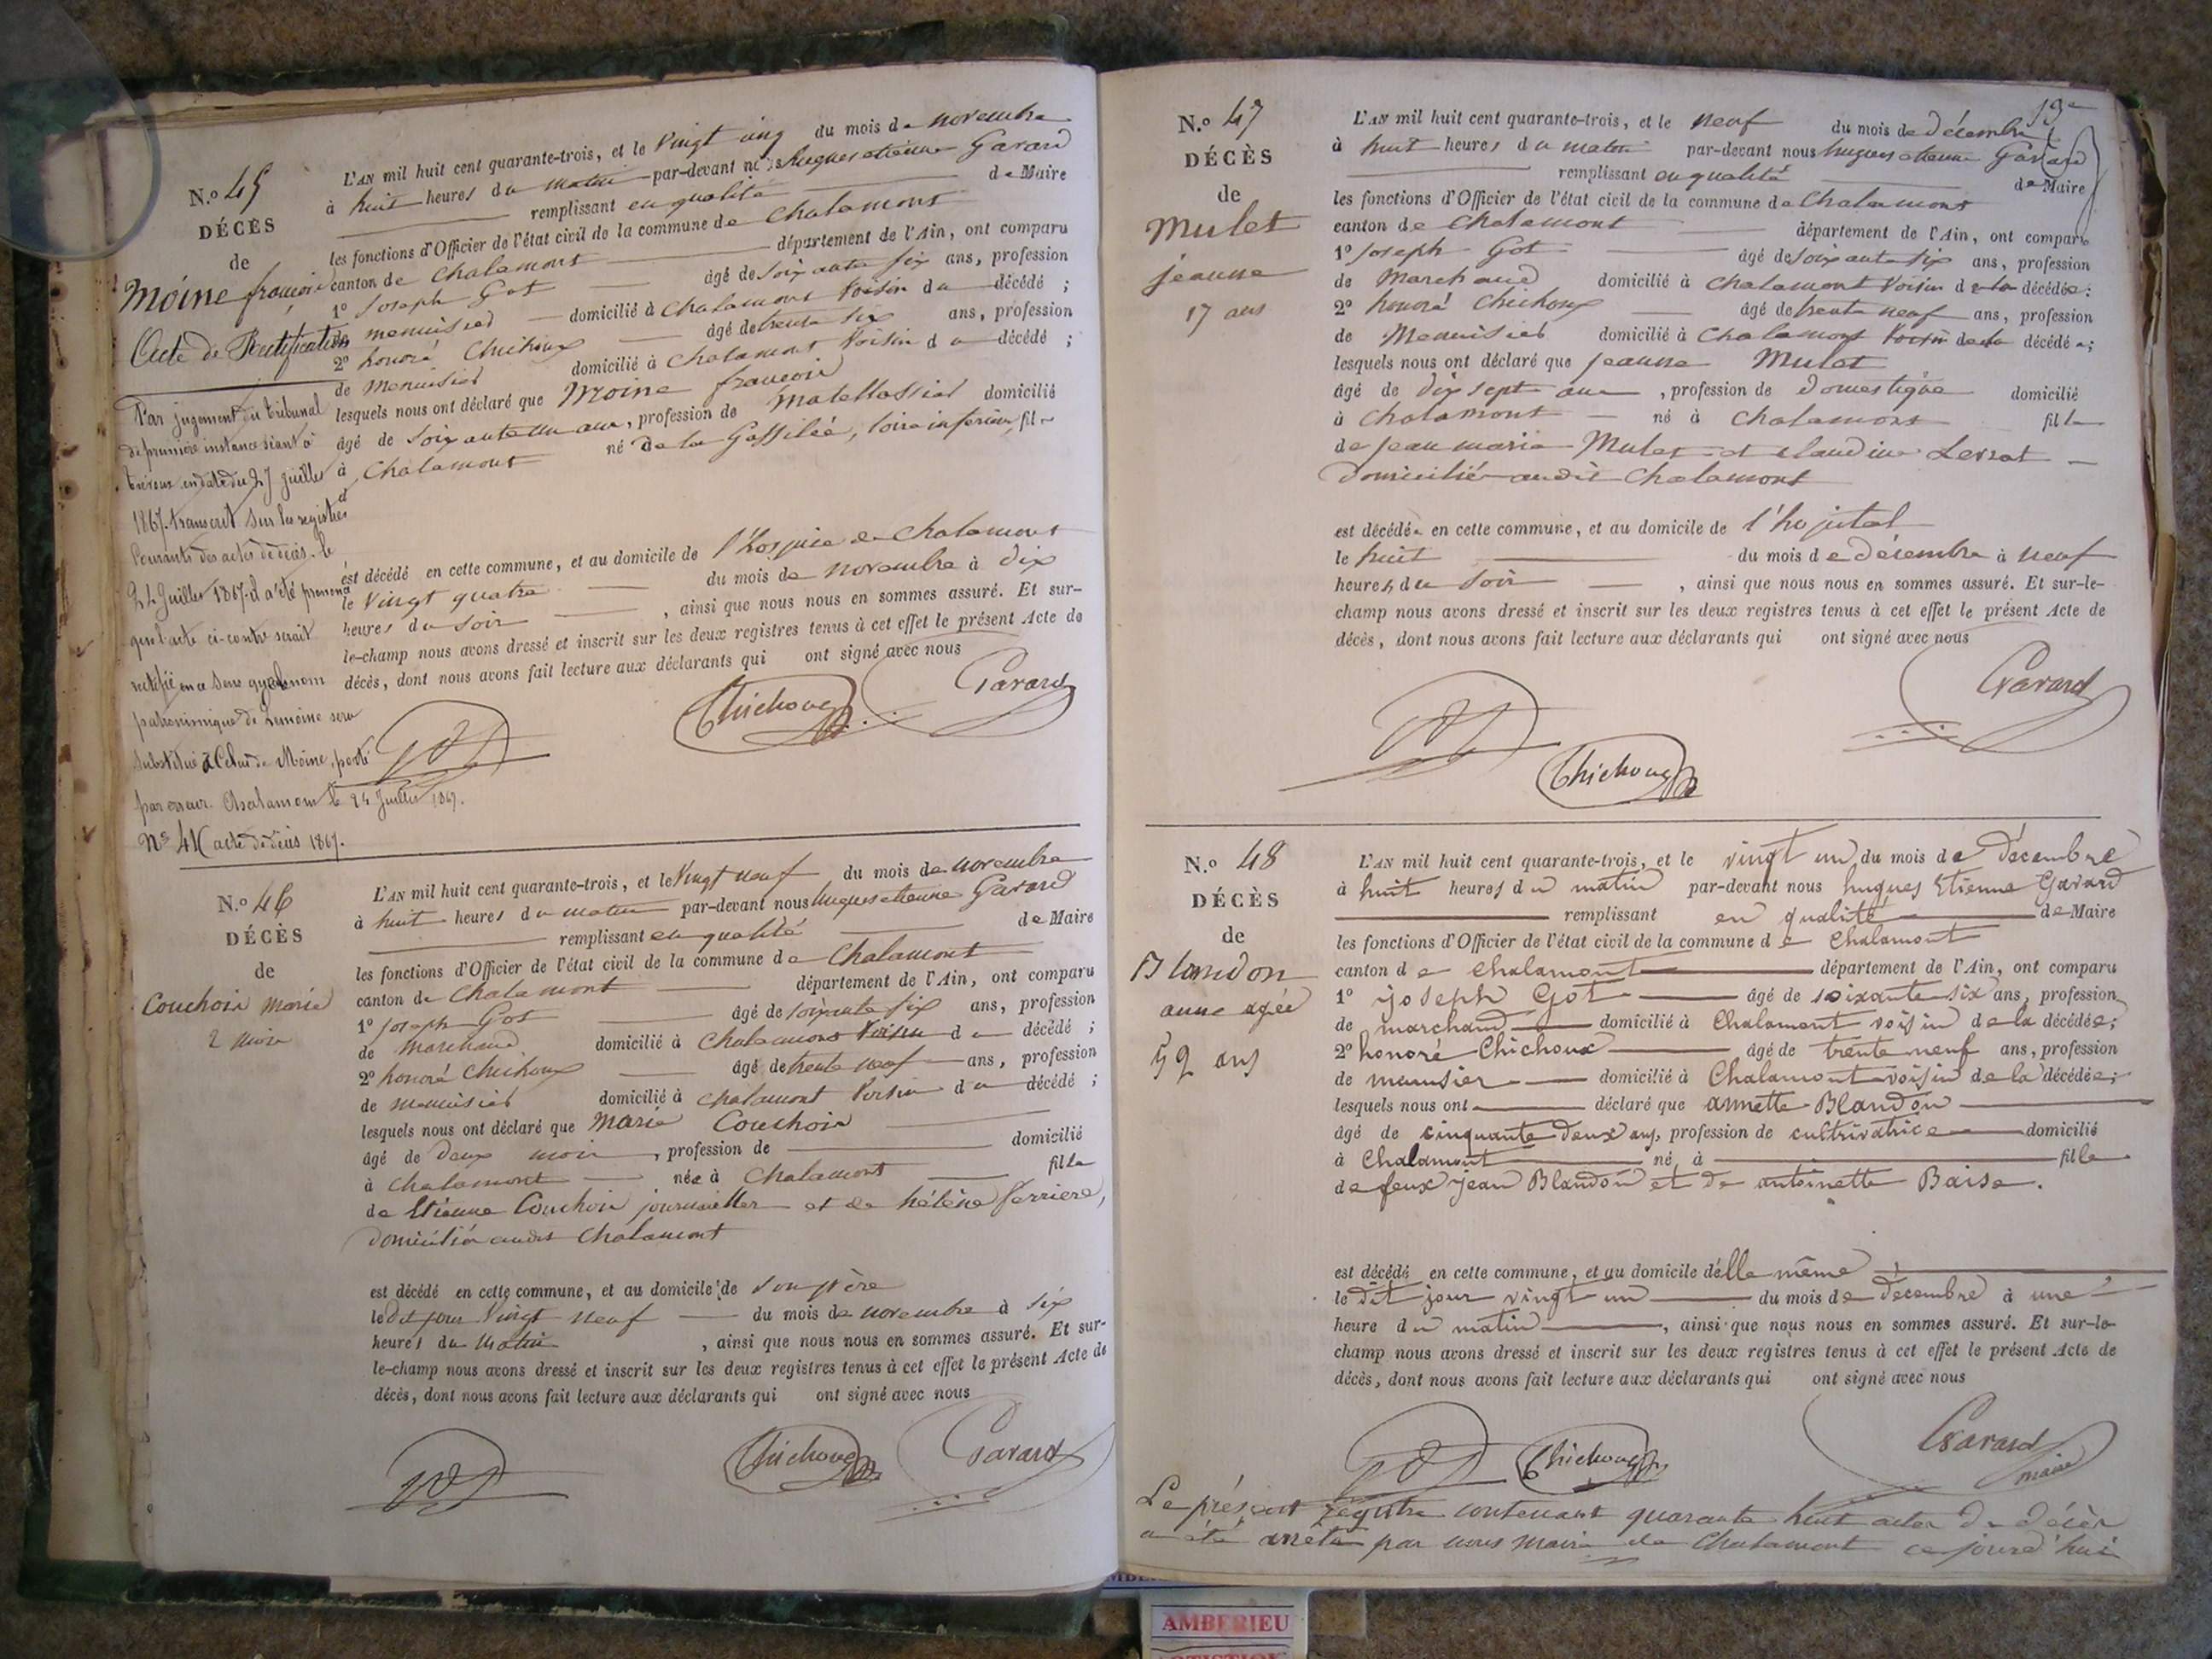 N.o 45
DÉCÈS
de
Moine françois
Acte de Rectification
Par jugement du tribunal
de première instance séant à
Trévoux en date du 27 juillet
1867. transcrit sur les registres
courants des actes de décès le
24 Juillet 1867. il a été prononcé
que l'acte ci-contre serait
rectifié en ce sens que le nom
patronimique de Lemoine sera
substitué à Celui de Moine, porté
par erreur. Chalamont le 24 Juillet 1867.
No 41 acte de décès 1867.
L'AN mil huit cent quarante-trois, et le vingt cinq du mois de novembre
à huit heures du matin par-devant nous hugues etienne Gavard
remplissant en qualité de Maire
les fonctions d'Officier de l'état civil de la commune de Chalamont
canton de Chalamont département de l'Ain, ont comparu
1o Joseph Got âgé de soixante six ans, profession
de menuisier domicilié à Chalamont voisin du décédé ;
2o honoré Chichoux âgé de trente six ans, profession
de menuisier domicilié à Chalamont voisin du décédé ;
lesquels nous ont déclaré que Moine françois
âgé de soixante un ans, profession de Matellassier domicilié
à Chalamont né de la , loire inférieure, fil
d
est décédé en cette commune, et au domicile de l'hospice de Chalamont
le vingt quatre du mois de novembre à dix
heures du soir , ainsi que nous nous en sommes assuré. Et sur-
le-champ nous avons dressé et inscrit sur les deux registres tenus à cet effet le présent Acte de
décès, dont nous avons fait lecture aux déclarants qui ont signé avec nous
Got Chichoux Gavard
N.o 46
DÉCÈS
de
Couchoir Marie
2 mois
L'AN mil huit cent quarante-trois, et le vingt neuf du mois de novembre
à huit heures du matin par-devant nous hugues etienne Gavard
remplissant en qualité de Maire
les fonctions d'Officier de l'état civil de la commune de Chalamont
canton de Chalamont département de l'Ain, ont comparu
1o Joseph Got âgé de soixante six ans, profession
de Marchand domicilié à Chalamont voisin du décédé ;
2o honoré Chichoux âgé de trente neuf ans, profession
de menuisier domicilié à Chalamont voisin du décédé ;
lesquels nous ont déclaré que Marie Couchoir
âgé de deux mois, profession de domicilié
à Chalamont née à Chalamont fille
de Etienne Couchoir journallier et de hélène ferriere,
domicilié audit Chalamont
est décédé en cette commune, et au domicile de son père
le dit jour vingt neuf du mois de novembre à six
heures du matin , ainsi que nous nous en sommes assuré. Et sur-
le-champ nous avons dressé et inscrit sur les deux registres tenus à cet effet le présent Acte de
décès, dont nous avons fait lecture aux déclarants qui ont signé avec nous
Got Chichoux Gavard
19e
N.o 47
DÉCÈS
de
Mulet
jeanne
17 ans
L'AN mil huit cent quarante-trois, et le neuf du mois de décembre
à huit heures du matin par-devant nous hugues etienne Gavard
remplissant en qualité de Maire
les fonctions d'Officier de l'état civil de la commune de Chalamont
canton de Chalamont département de l'Ain, ont comparu
1o Joseph Got âgé de soixante six ans, profession
de Marchand domicilié à Chalamont voisin de la décédée ;
2o honoré Chichoux âgé de trente neuf ans, profession
de Menuisier domicilié à Chalamont voisin de la décédée ;
lesquels nous ont déclaré que jeanne Mulet
âgé de dix sept ans , profession de domestique domicilié
à Chalamont né à Chalamont fille
de jean marie Mulet et claudine Lersat
domiciliés audit Chalamont
est décédée en cette commune, et au domicile de l'hopital
le huit du mois de décembre à neuf
heures du soir , ainsi que nous nous en sommes assuré. Et sur-le-
champ nous avons dressé et inscrit sur les deux registres tenus à cet effet le présent Acte de
décès, dont nous avons fait lecture aux déclarants qui ont signé avec nous
Got Chichoux Gavard
N.o 48
DÉCÈS
de
Blandon
anne agée
52 ans
L'AN mil huit cent quarante-trois, et le vingt un du mois de décembre
à huit heures du matin par-devant nous hugues Etienne Gavard
remplissant en qualité de Maire
les fonctions d'Officier de l'état civil de la commune de Chalamont
canton de Chalamont département de l'Ain, ont comparu
1o joseph Got âgé de soixante six ans, profession
de marchand domicilié à Chalamont voisin de la décédée ;
2o honoré Chichoux âgé de trente neuf ans, profession
de manusier domicilié à Chalamont voisin de la décédée ;
lesquels nous ont déclaré que annette Blandon
âgé de cinquante deux ans, profession de cultrivatrice domicilié
à Chalamont né à fille
de feux jean Blandon et de antoinette Baise.
est décédé en cette commune, et au domicile d'elle même
le dit jour vingt un du mois de decembre à une
heure du matin , ainsi que nous nous en sommes assuré. Et sur-le-
champ nous avons dressé et inscrit sur les deux registres tenus à cet effet le présent Acte de
décès, dont nous avons fait lecture aux déclarants qui ont signé avec nous
Got Chichoux Gavard
maire
Le présent registre contenant quarante huit actes de décès
a été arrêté par nous maire de Chalamont ce jourd'hui
AMBERIEU